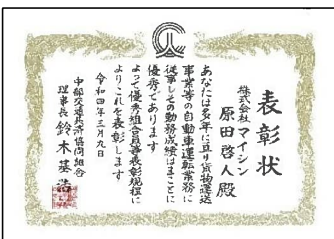 表彰状
株式会社マイシン
原田啓人殿
あなたは多年に亘り貨物運送
事業等の自動車運転業務に
従事しその勤務成績はまことに
優秀であります
よって優秀組合員等表彰規程に
よりこれを表彰します
令和四年三月九日
中部交通共済協同組合
理事長 鈴木基